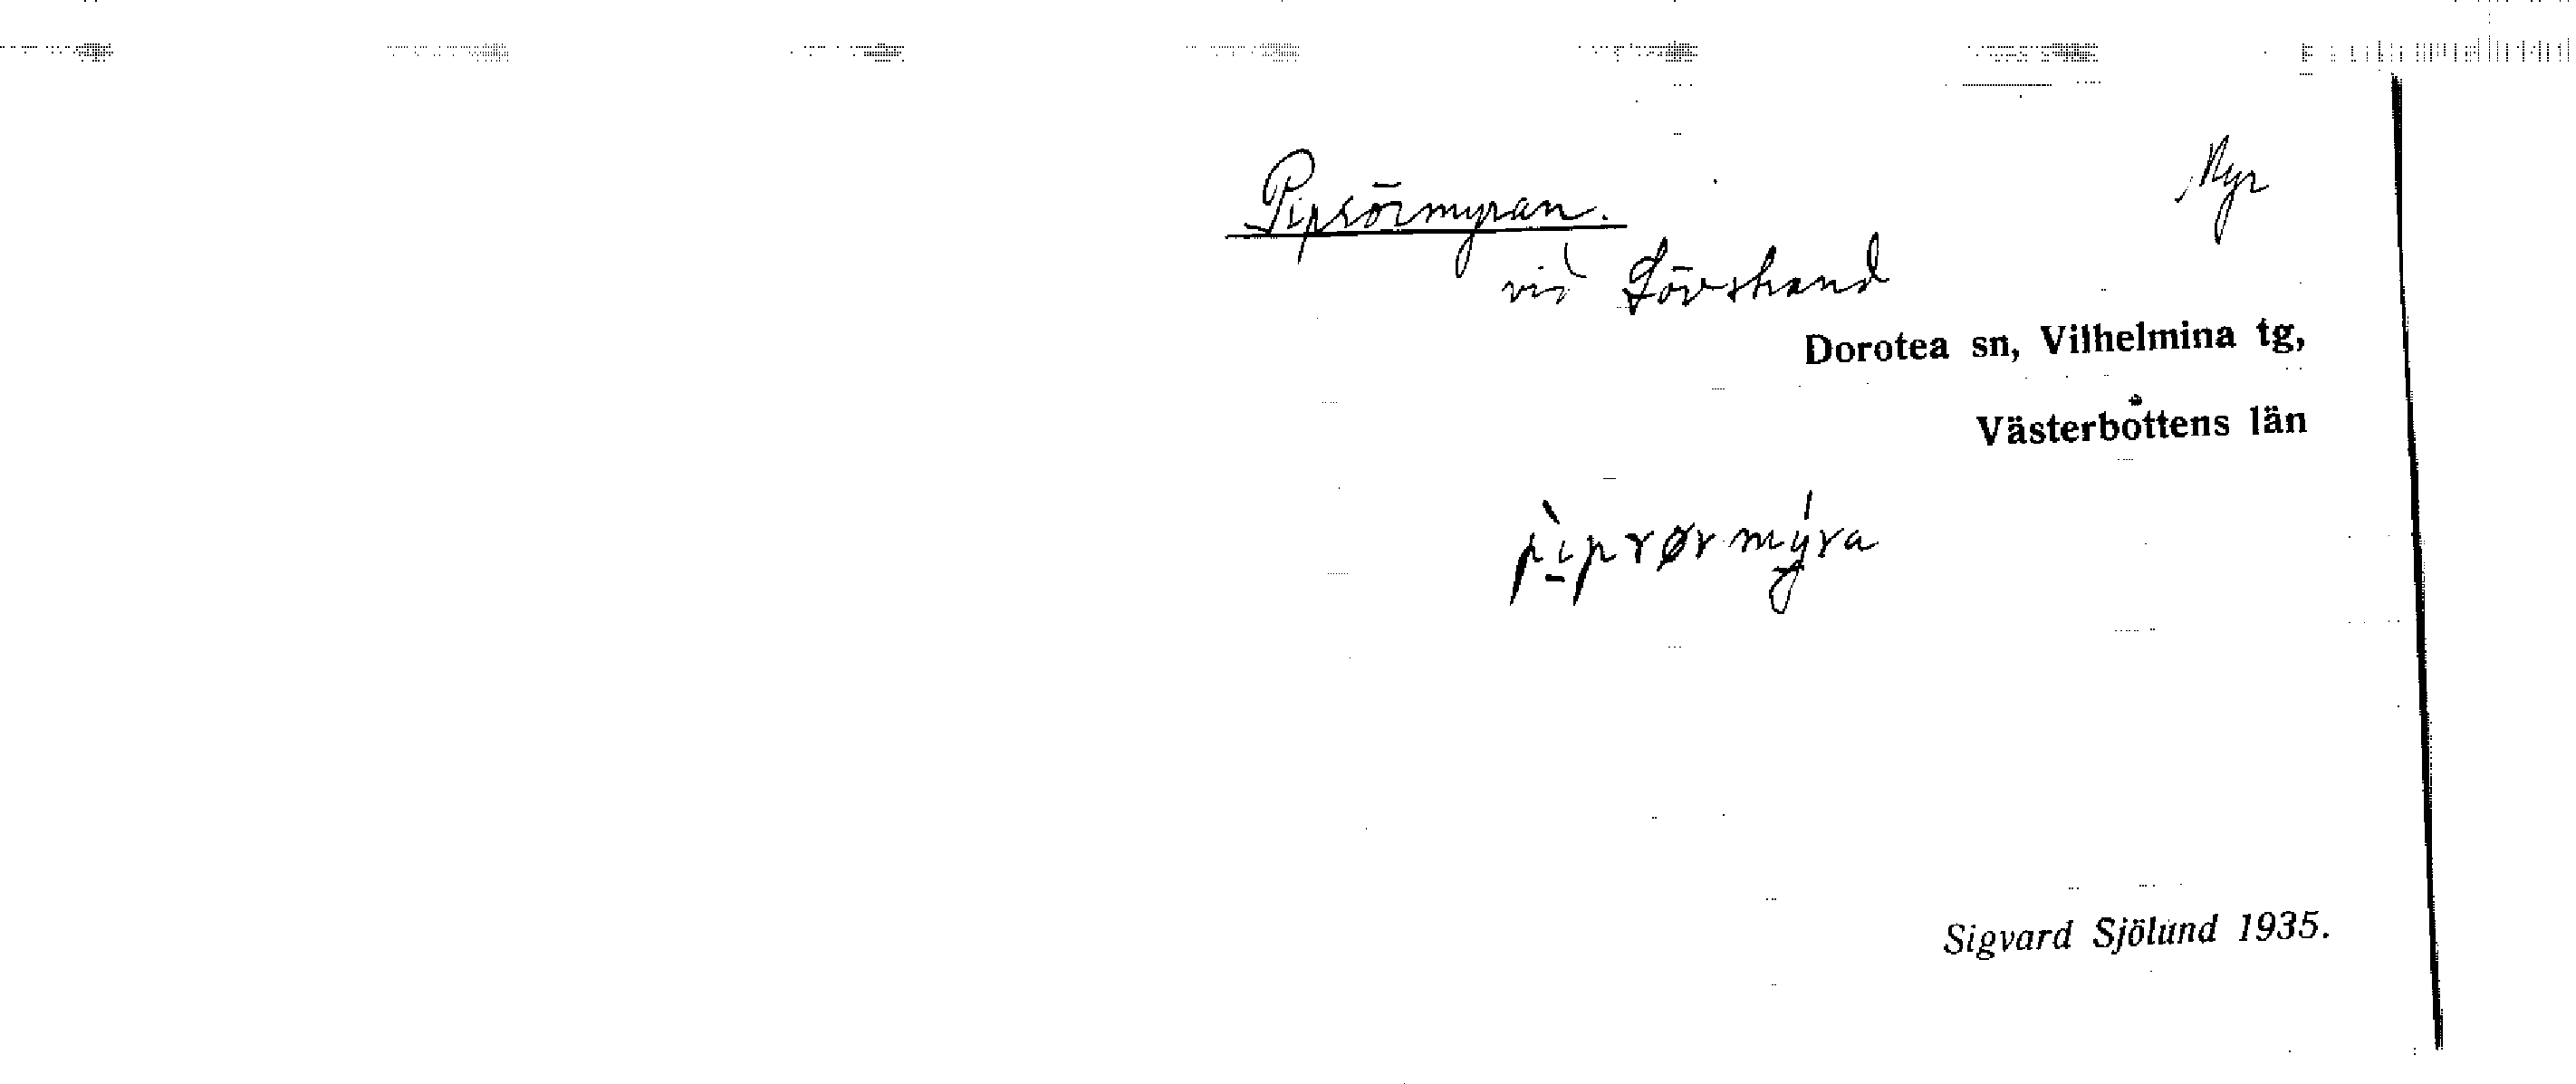 Piprörmyran. Myr
vid Lövstrand
Dorotea sn, Vilhelmina tg,
Västerbottens län
pìprørmýra
Sigvard Sjölund 1935.